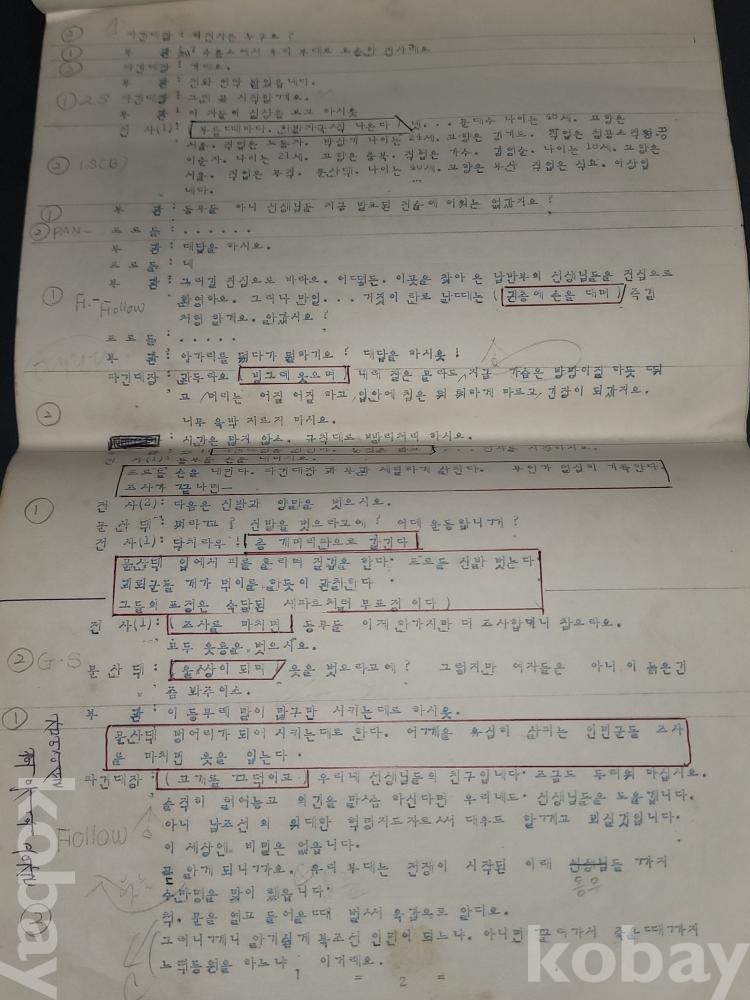 ② 파견대장 : 저전사는 누구요?
① 부 관 : 수용소에서 우리 부대로 호송한 전사레요
② 파견대장 : 기래요.
부 관 : 전화 연락 받았읍네다.
① 2.S 파견대장 : 그럼 곧 시작할게요.
부 관 : 이 자들의 심상을 보고 하시웃
전 사(1) : 부를때마다. 한발자국식 나온다 네... 문데수 나이는 30세. 고향은
서울. 직업은 노동자. 박상기 나이는 24세. 고향은 경기도. 직업은 철공소직공.
② 1.S(B) 이순자. 나이는 21세. 고향은 충북. 직업은 가수. 김임순. 나이는 18세. 고향은
서울. 직업은 무직. 문산댁. 나이는 40세. 고향은 부산 직업은 식모. 이상입
니다.
① 부 관 : 동무들 아니 선생님들 지금 발표된 진술에 허위는 없갔지요?
② PAN- 포로들 : ......
부 관 : 대답을 하시요.
포로들 : 네
부 관 : 그러길 진심으로 바라오. 어떻든. 이곳을 찾아 온 남반부의 선생님들을 진심으로
① F.-Follow 환영하오. 그러나 만일... 거짓이 탄로 날때는 (권총에 손을 대며) 즉결
처형 할게요. 알갔시요?
포로들 : .....
부 관 : 아가리를 뒀다가 뭘하기요? 대답을 하시웃!
파견대장 : 관두라요 (빙그데 웃으며) 내래 잘은 몰라도 지금 가슴은 방망이질 하듯 뛰
고 머리는 어질 어질 하고 입안에 침은 바싹하게 마르고 긴장이 되갔지요.
② 너무 윽박 지르지 마시요.
: 시간은 많지 않소. 규칙대로 빨리처리 하시요.
전 사(1) : 동무들 손을 내미시요.
포로들 손을 내민다. 파견대장 과 부관 세밀하게 살핀다. 부인가 열심히 기록한다.
조사가 끝나면—
① 전 사(2) : 다음은 신발과 양말을 벗으시요.
문산댁 : 뭐라꼬? 신발을 벗으라고에? 어데 운동합니꺼?
전 사(1) : 닥치라우! 총 개머리판으로 갈긴다
문산댁 입에서 피를 흘리며 질겁을 한다. 포로들 신발 벗는다
괴뢰군들 개가 먹이를 핥듯이 관찰한다
그들의 표정은 숙달된 세파트처럼 무표정이다)
전 사(1) : (조사를 마치면 동무들 이게 한가지만 더 조사합데니 참으라요.
모두 웃옷을 벗으시요.
② G.S 문산댁 : 울상이 되며 옷을 벗으라고에? 그렇지만 여자들은 아니 이 늙은건
좀 봐주이소.
① 부 관 : 이 동무레 말이 많구만 시키는대로 하시웃.
문산댁 벙어리가 되어 시키는대로 한다. 어깨을 유심히 살피는 인민군들 조사
를 마치면 옷을 입는다.
파견대장 : (고개를 끄덕이고) 우리네 선생님들의 친구입네다. 조금도 두려워 마십시요.
솔직히 털어놓고 의견을 말씀 하신다면 우리네도 선생님들을 도울겁니다.
Follow 아니 남조선 의 위대한 혁명지도자로써 대우도 할게고 뫼실것입니다.
이 세상엔. 비밀은 없읍니다.
곧 알게 되니까요. 우리 부대는 전쟁이 시작된 이래 선생님들 까지
동무
수만명을 맞이 했읍니다.
척. 문을 열고 들어올때 벌써 육감으로 알디요.
그러니께니 알기쉽게 북조선 인민이 되느냐. 아니면 끌려가서 죽을때까지
노력동원을 하느냐 이거예요.
= 2 =
kobay
kobay